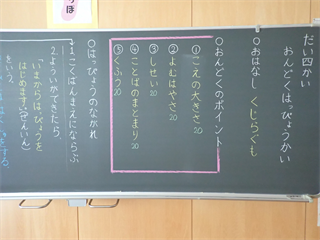 だい四かい
おんどくはっぴょうかい
○おはなし くじらぐも
○おんどくのポイント
①こえの大きさ20
②よむはやさ20
③しせい20
④ことばのまとまり20
⑤くふう20
○はっぴょうのながれ
1.こくばんまえにならぶ
2.よういができたら、
「いまからはっぴょうを
はじめます。」(ぜんいん)
をいう。